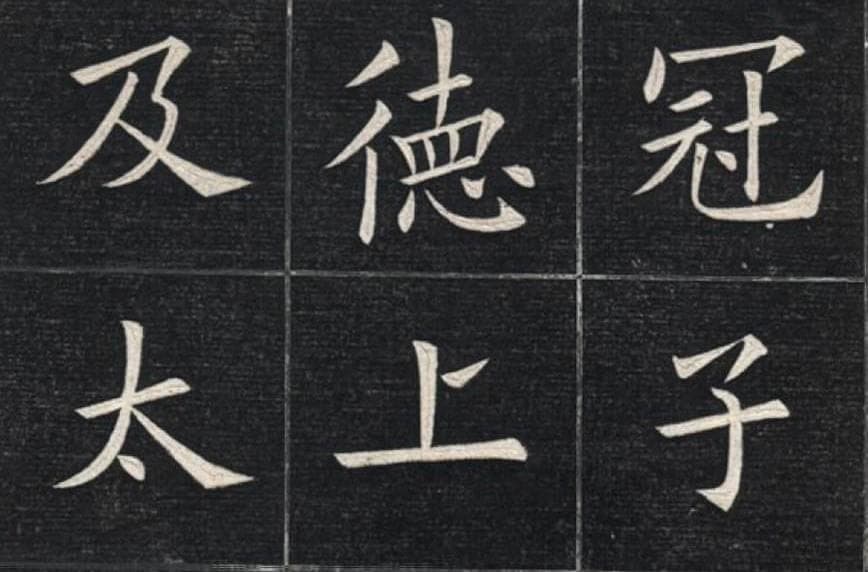 冠子
徳上
及太